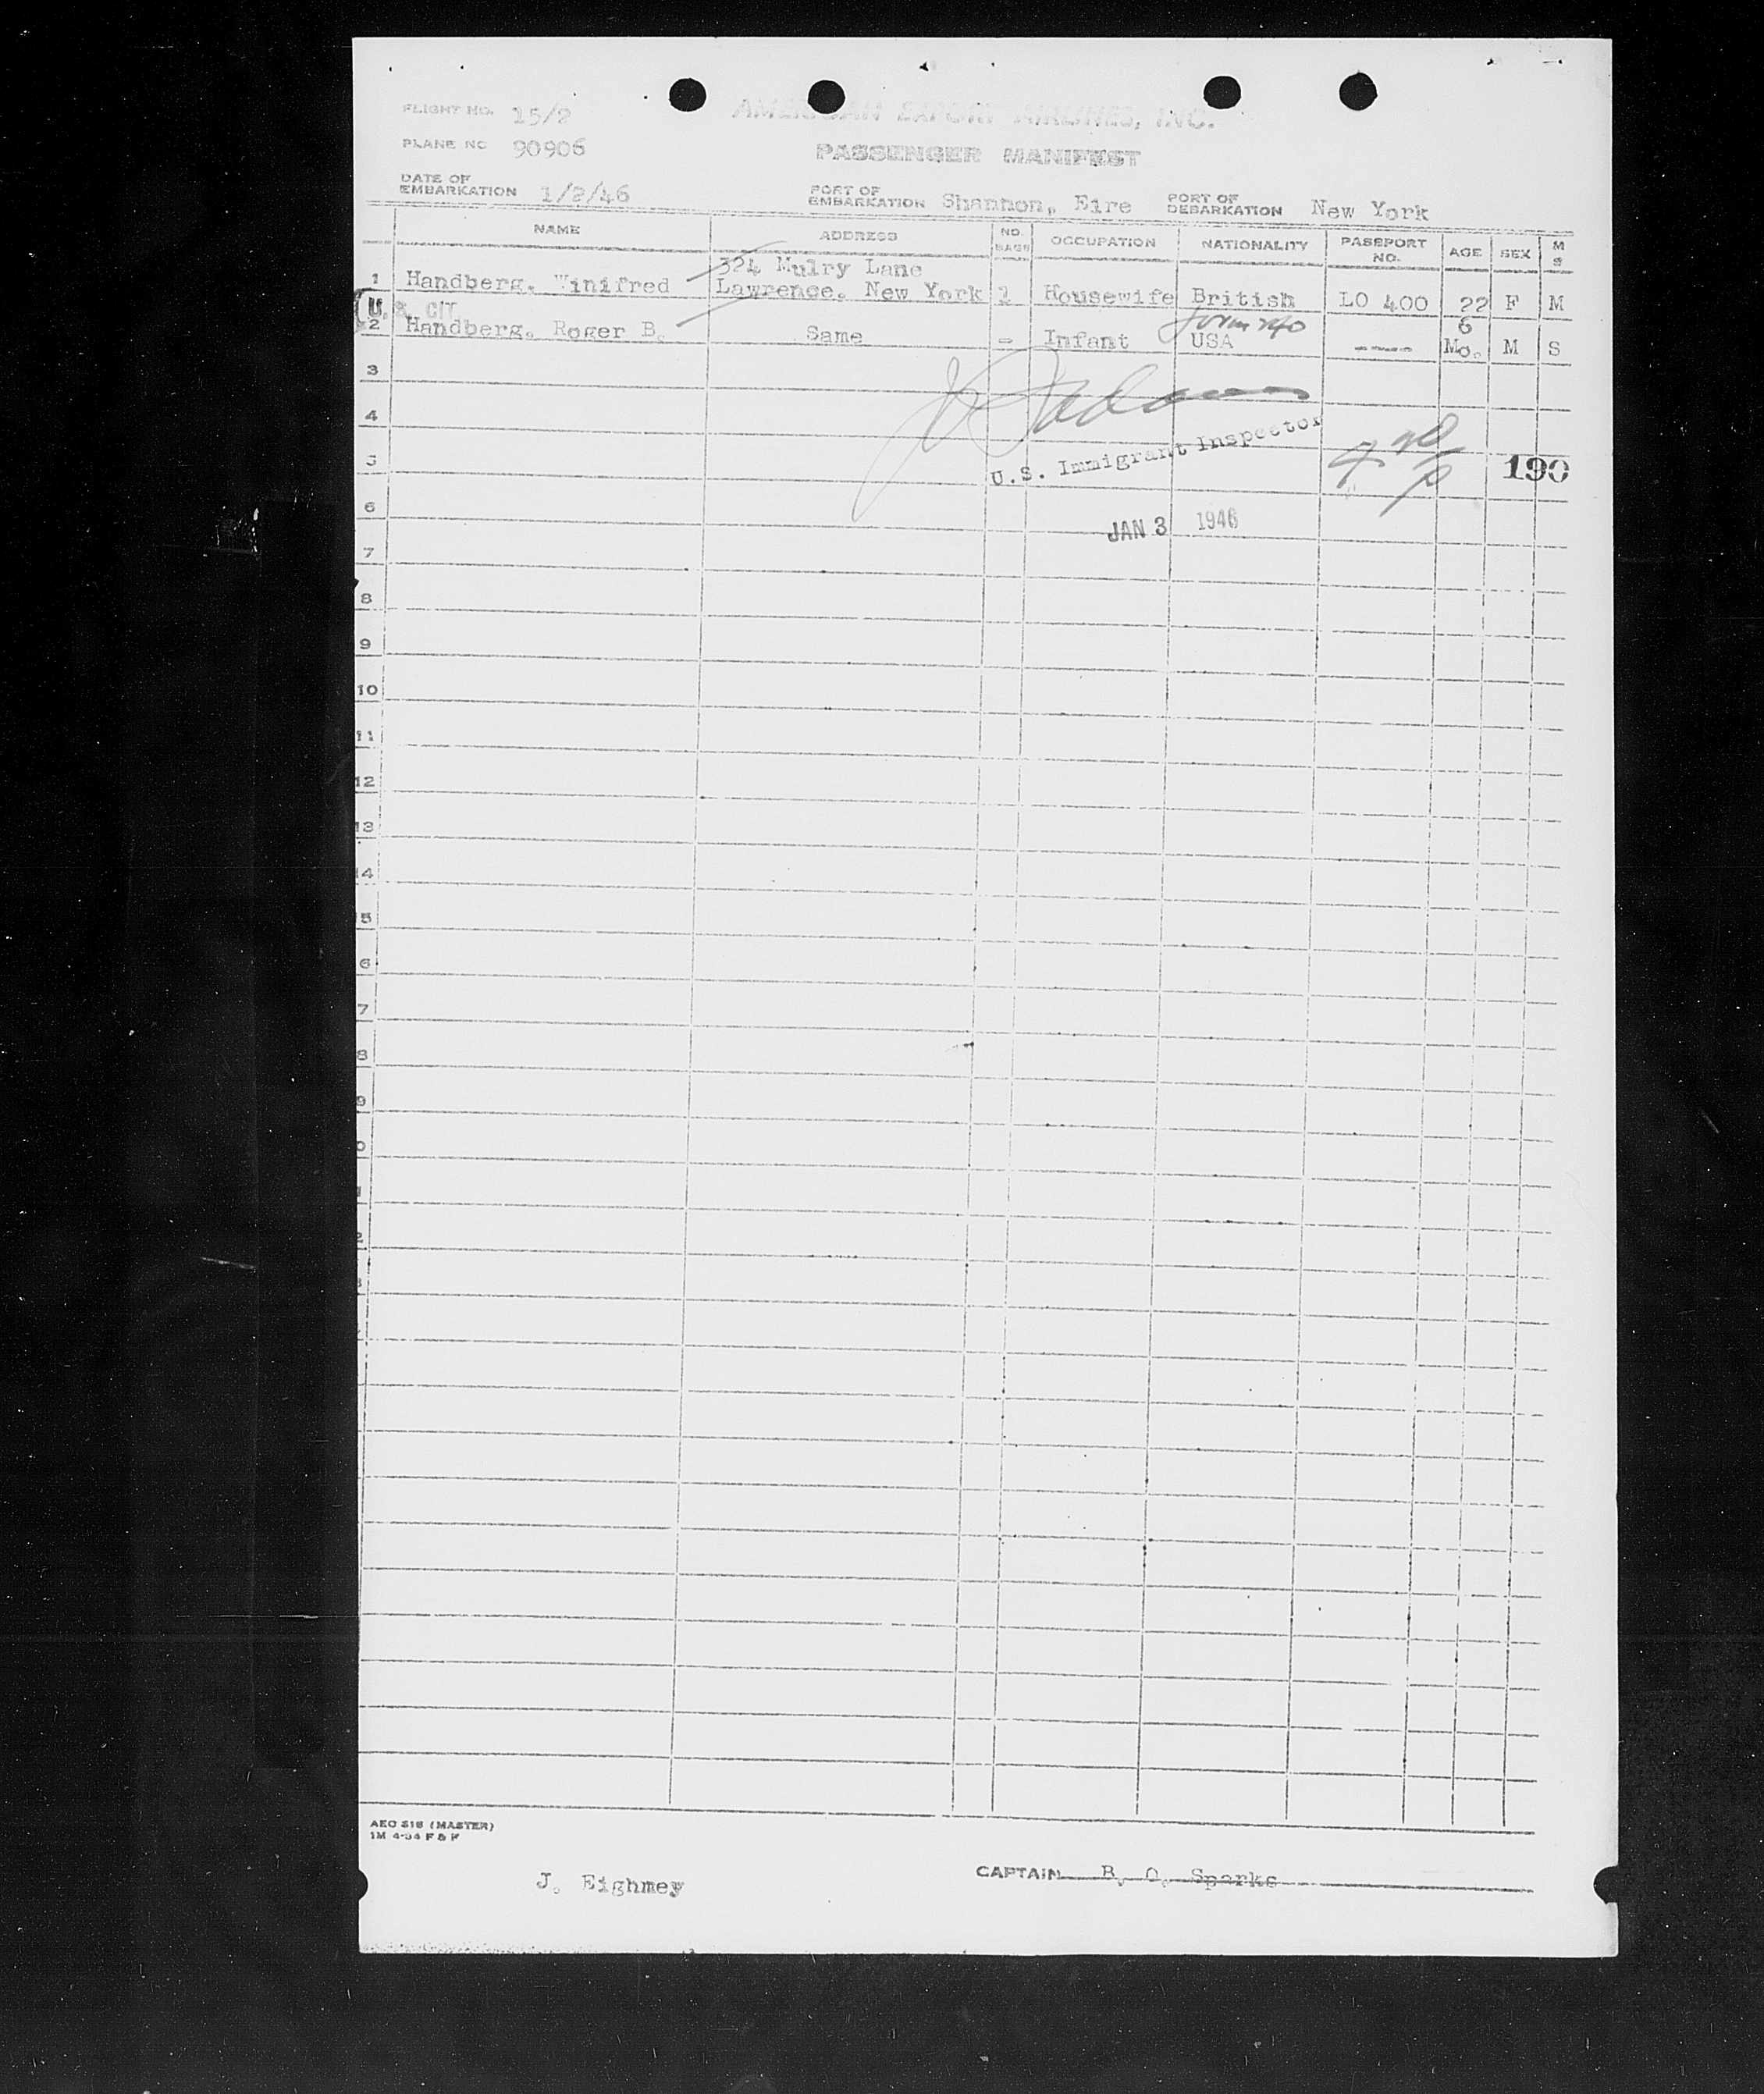 FLIGHT NO. 15/2
AMERICAN EXPORT AIRLINES, INC.
PLANE NO 90906
PASSENGER MANIFEST
DATE OF EMBARKATION 1/2/46 PORT OF EMBARKATION Shannon, Eire PORT OF DEBARKATION New York
NAME ADDRESS NO. BAGS OCCUPATION NATIONALITY PASSPORT NO. AGE SEX M S
324 Mulry Lane
1 Handberg, Winifred Lawrence, New York 1 Housewife British LO 400 22 F M
U.S. CIT.
2 Handberg, Roger B. Same - Infant USA ---- 6 Mo. M S
3
4
U.S. Immigrant Inspector
5 190
6
JAN 3 1946
7
8
9
10
11
12
13
14
5
6
7
8
9
0
1
2
AEO 818 (MASTER)
J. Eighmey
CAPTAIN B. O. Sparks